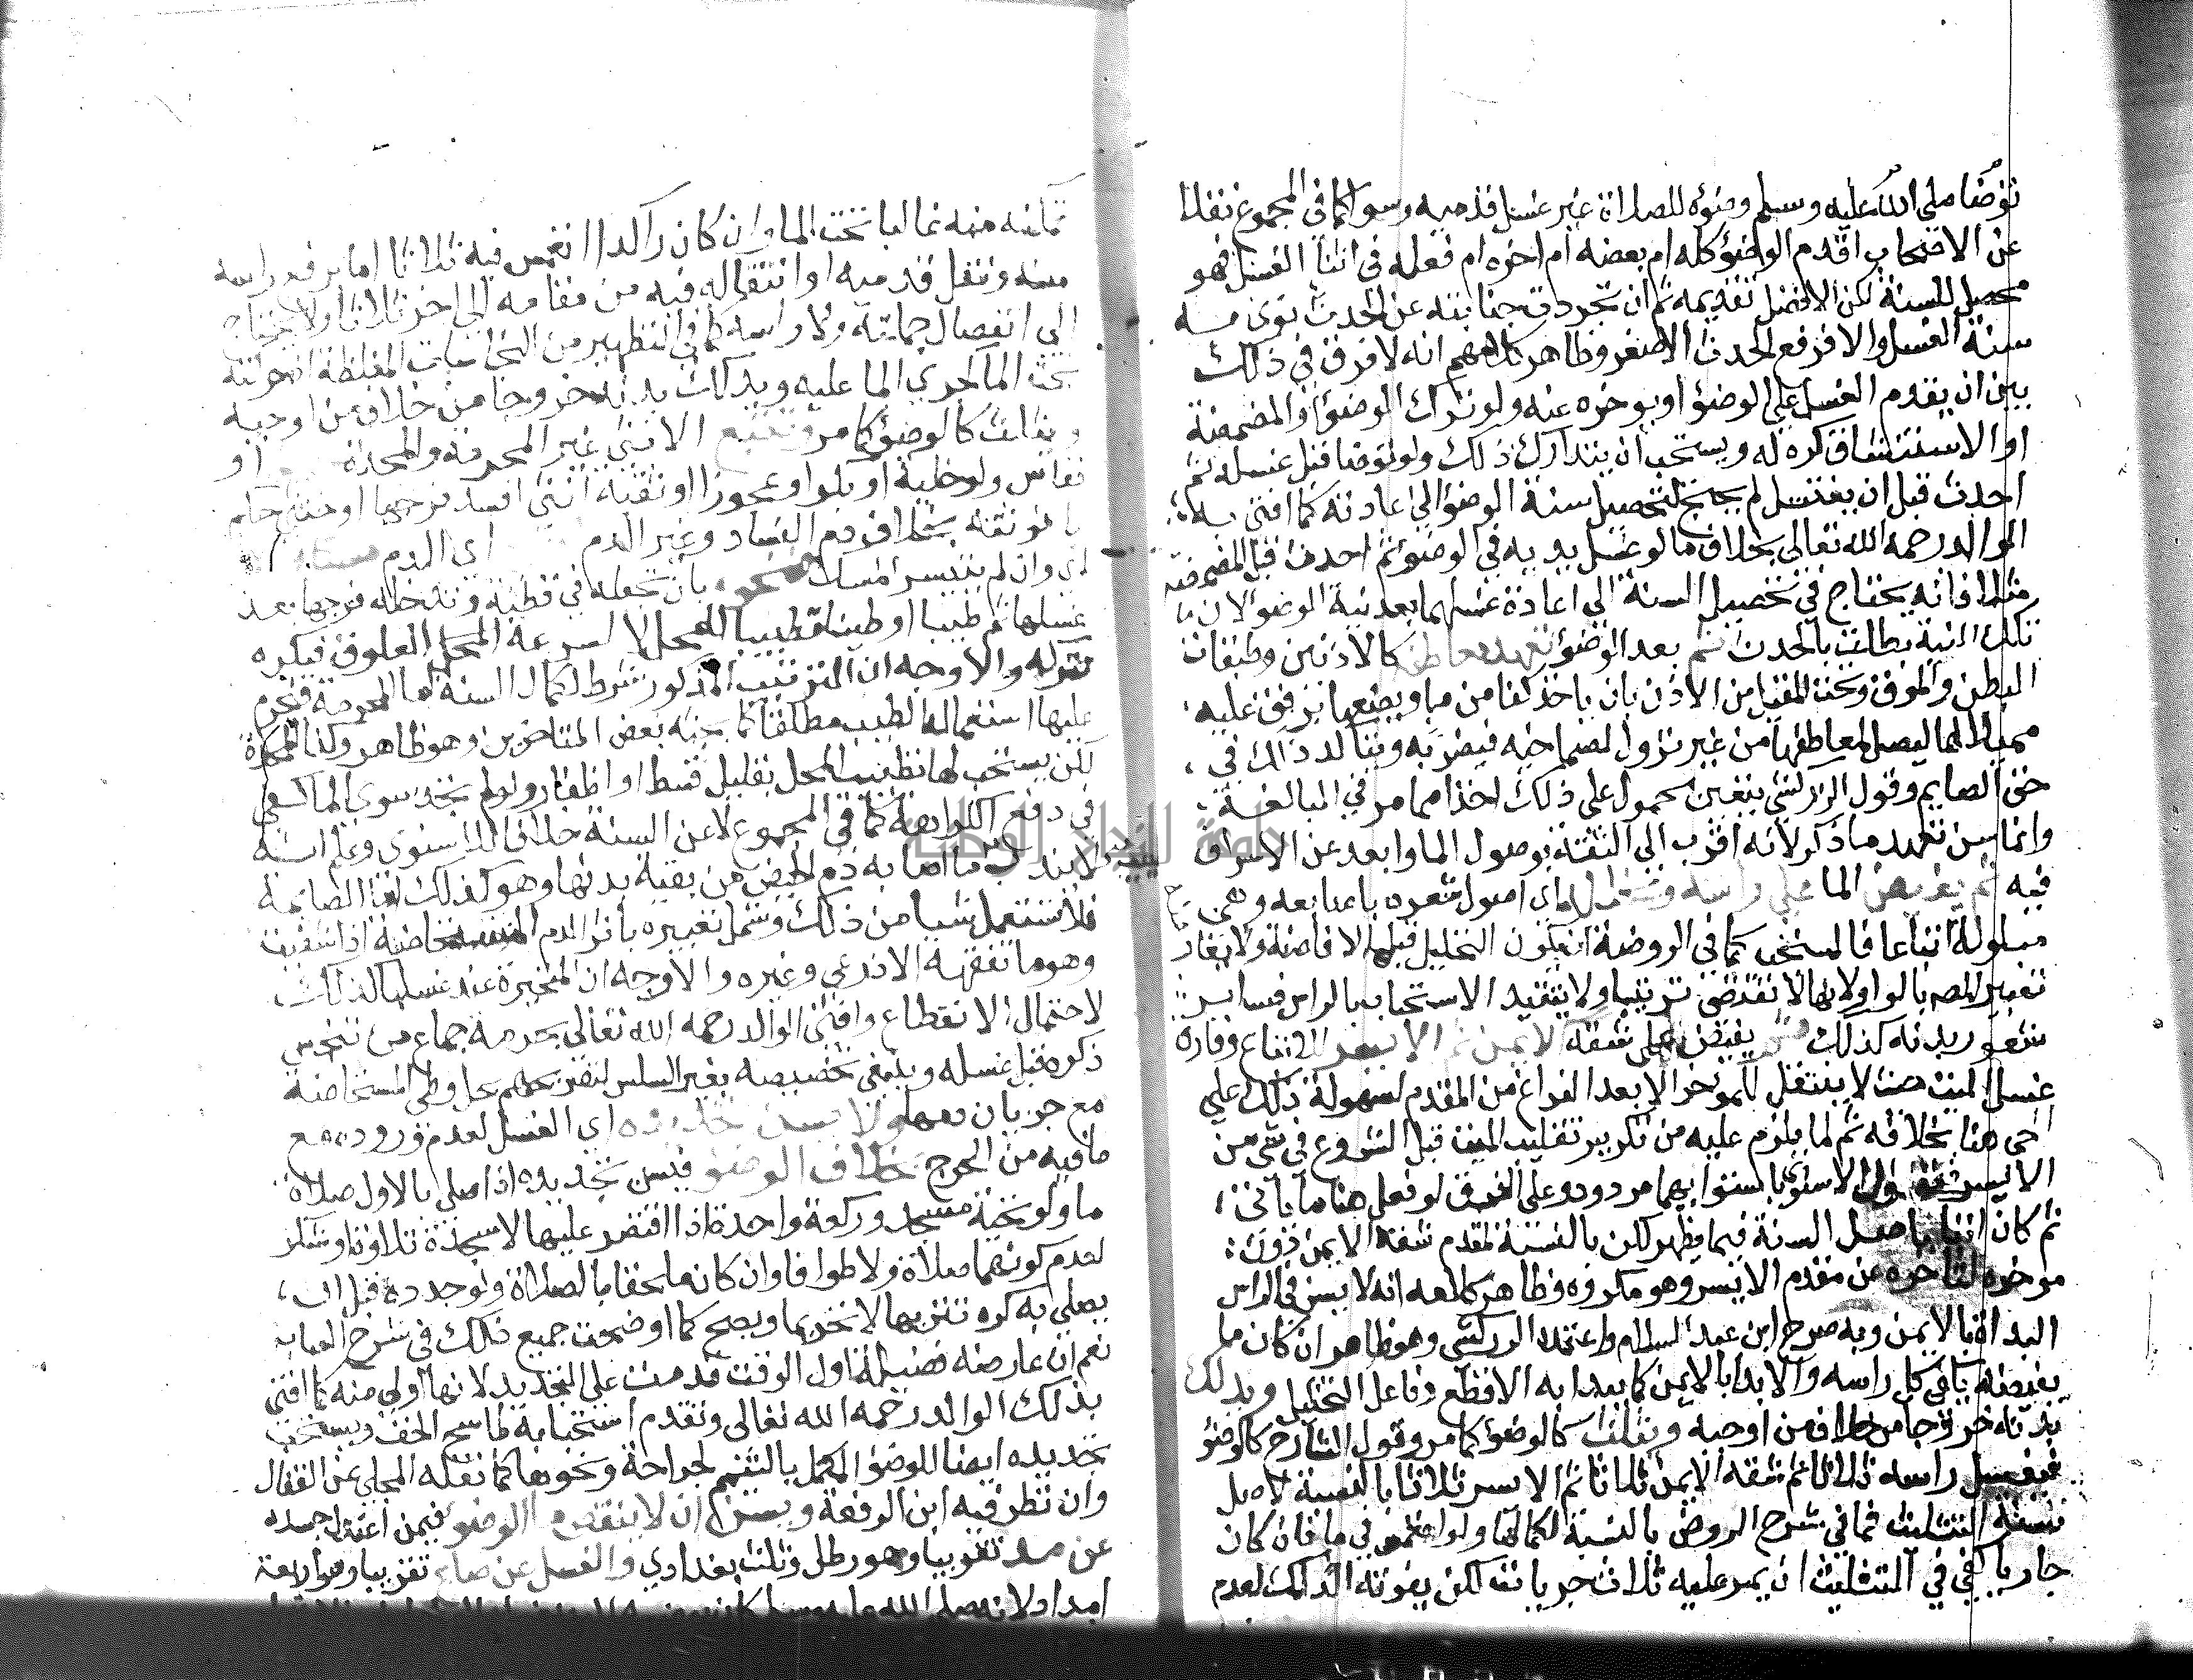 توضا صلى الله عليه وسلم وضوءه للصلاة غير غسل قدميه وسوا كما في المجموع نقلا
عن الاصحاب اقدم الوضو كله ام بعضه ام اخره ام فعله في اثنا الغسل فهو
محصل للسنة لكن الافضل تقديمه ثم ان تجردت جنابته عن الحدث نوى به
سنة الغسل والا فرفع الحدث الاصغر وظاهر كلامهم انه لا فرق في ذلك
بين ان يقدم الغسل على الوضو او يوخره عنه ولو ترك الوضو او المضمضة
او الاستنشاق كره له ويستحب ان يتدارك ذلك ولو توضا قبل غسله ثم
احدث قبل ان يغتسل لم يحتج لتحصيل سنة الوضو الى اعادته كما افتى به
الوالد رحمه الله تعالى بخلاف ما لو غسل يديه في الوضو ثم احدث قبل المضمضة
مثلا فانه يحتاج في تحصيل السنة الى اعادة غسلهما بعد نية الوضو لان
تلك النية بطلت بالحدث ثم بعد الوضو تعهد معاطفه كالاذنين وطبقات
البطن والموق وتحت المقبل من الاذن بان ياخذ كفا من ما ويضعها برفق عليه
مميلا لها ليصل لمعاطفها من غير نزول لصماخيه فيضر به ويتاكد ذلك في
حق الصايم وقول الزركشي يتعين محمول على ذلك اخذا مما مر في المبالغة
وانما سن تعهد ما ذكر لانه اقرب الى الثقة بوصول الما وابعد عن الاسراف
فيه ثم يفيض الما على راسه ويخلله اي اصول شعره باصابعه وهي
مبلولة اتباعا فالمستحب كما في الروضة ان يكون التخليل قبل الافاضة ولا ينافيه
تعبير المص بالواو لانها لا تقتضي ترتيبا ولا يتقيد الاستحباب بالراس فساير
شعور بدنه كذلك ثم يفيض على شقه الايمن ثم الايسر للاتباع وفارق
غسل الميت حيث لا ينتقل للموخر الا بعد الفراغ من المقدم لسهولة ذلك على
الحي هنا بخلافه ثم لما يلزم عليه من تكرير تقليب الميت قبل الشروع في شي من
الايسر فقول الاسنوي باستوايهما مردود وعلى الفرق لو فعل هنا ما ياتي
ثم كان اتيا باصل السنة فيما يظهر لكن بالنسبة لمقدم شقه الايمن دون
موخره لتاخره عن مقدم الايسر وهو مكروه وظاهر كلامه انه لا يسن في الراس
البداة بالايمن وبه صرح ابن عبد السلام واعتمده الزركشي وهو ظاهر ان كان ما
يفيضه يكفي كل راسه والا بدا بالايمن كما يبدا به الاقطع وفاعل التخليل ويدلك
بدنه خروجا من خلاف من اوجبه ويثلث كالوضو كما مر وقول الشارح كالوضو
فيغسل راسه ثلاثا ثم شقه الايمن ثلاثا ثم الايسر ثلاثا بالنسبة لاصل
سنة التثليث فما في شرح الروض بالنسبة لكمالها ولو انغمس في ما فان كان
جاريا كفي في التثليث ان يمر عليه ثلاث جريات لكن يفوته الدلك لعدم
تمكنه منه غالبا تحت الما وان كان راكدا انغمس فيه ثلاثا اما برفع راسه
منه ونقل قدميه او انتقاله فيه من مقامه الى اخر ثلاثا ولا يحتاج
الى انفصال جملته ولا راسه كما في التطهير من النجاسات المغلظة اذ حركته
تحت الما كجري الما عليه ويدلك بدنه خروجا من خلاف من اوجبه
ويثلث كالوضو كما مر وتتبع الانثى غير المحرمة والمحدة او
نفاس ولو خلية او بكرا او عجوزا او ثقبة انثى انسد فرجها او خنثى حكم
بانوثته بخلاف دم الفساد وغير الدم اي الدم مسكا
اي وان لم يتيسر المسك فنحوه بان تجعله في قطنة وتدخله فرجها بعد
غسلها ثم طيبا او طينا تطييبا للمحل لا لسرعة العلوق فيكره
تركه والاوجه ان الترتيب المذكور شرط لكمال السنة اما المحرمة فيحرم
عليها استعمال الطيب مطلقا كما بحثه بعض المتاخرين وهو ظاهر وكذا المحدة
لكن يستحب لها تطييب المحل بقليل قسط او اظفار ولو لم تجد سوى الما كفى
في دفع الكراهة كما في المجموع لا عن السنة خلافا للاسنوي وعلم انه
لا يندب ما اصابه دم الحيض من بقية بدنها وهو كذلك اما الصايمة
فلا تستعمل شيا من ذلك وشمل تعبيره باثر الدم المستحاضة اذا شفيت
وهو ما تفقهه الاذرعي وغيره والاوجه ان المتحيرة عند غسلها كذلك
لاحتمال الانقطاع وافتى الوالد رحمه الله تعالى بحرمة جماع من تنجس
ذكره قبل غسله وينبغي تخصيصه بغير السلس لتصريحهم بحل وطي المستحاضة
مع جريان دمها ولا يسن تجديده اي الغسل لعدم وروده مع
ما فيه من الحرج بخلاف الوضو فيسن تجديده اذا صلى بالاول صلاة
ما ولو تحية مسجد وركعة واحدة اذا اقتصر عليها لا سجدة تلاوة او شكر
لعدم كونهما صلاة ولا طوافا وان كان ملحقا بالصلاة ولو جدده قبل ان
يصلي به كره تنزيها لا تحريما ويصح كما اوضحت جميع ذلك في شرح العباب
نعم ان عارضه فضيلة اول الوقت قدمت على التجديد لانها اولى منه كما افتى
بذلك الوالد رحمه الله تعالى وتقدم استحبابه لماسح الخف ويستحب
تجديده ايضا للوضو المكمل بالتيمم لجراحة ونحوها كما نقله المجلي عن القفال
وان نظر فيه ابن الرفعة ويسن ان لا ينقص ما الوضو فيمن اعتدل جسده
عن مد تقريبا وهو رطل وثلث بغدادي والغسل عن صاع تقريبا وهو اربعة
امداد لانه صلى الله عليه وسلم كان